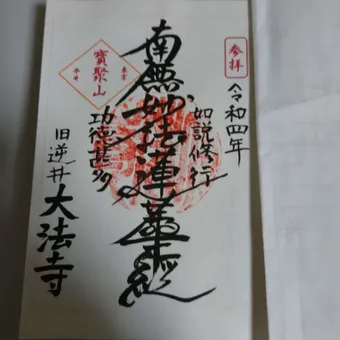 参拝
令和四年
如説修行
南無妙法蓮華経
功徳甚多
東京
寶聚山
平井
旧逆井
大法寺